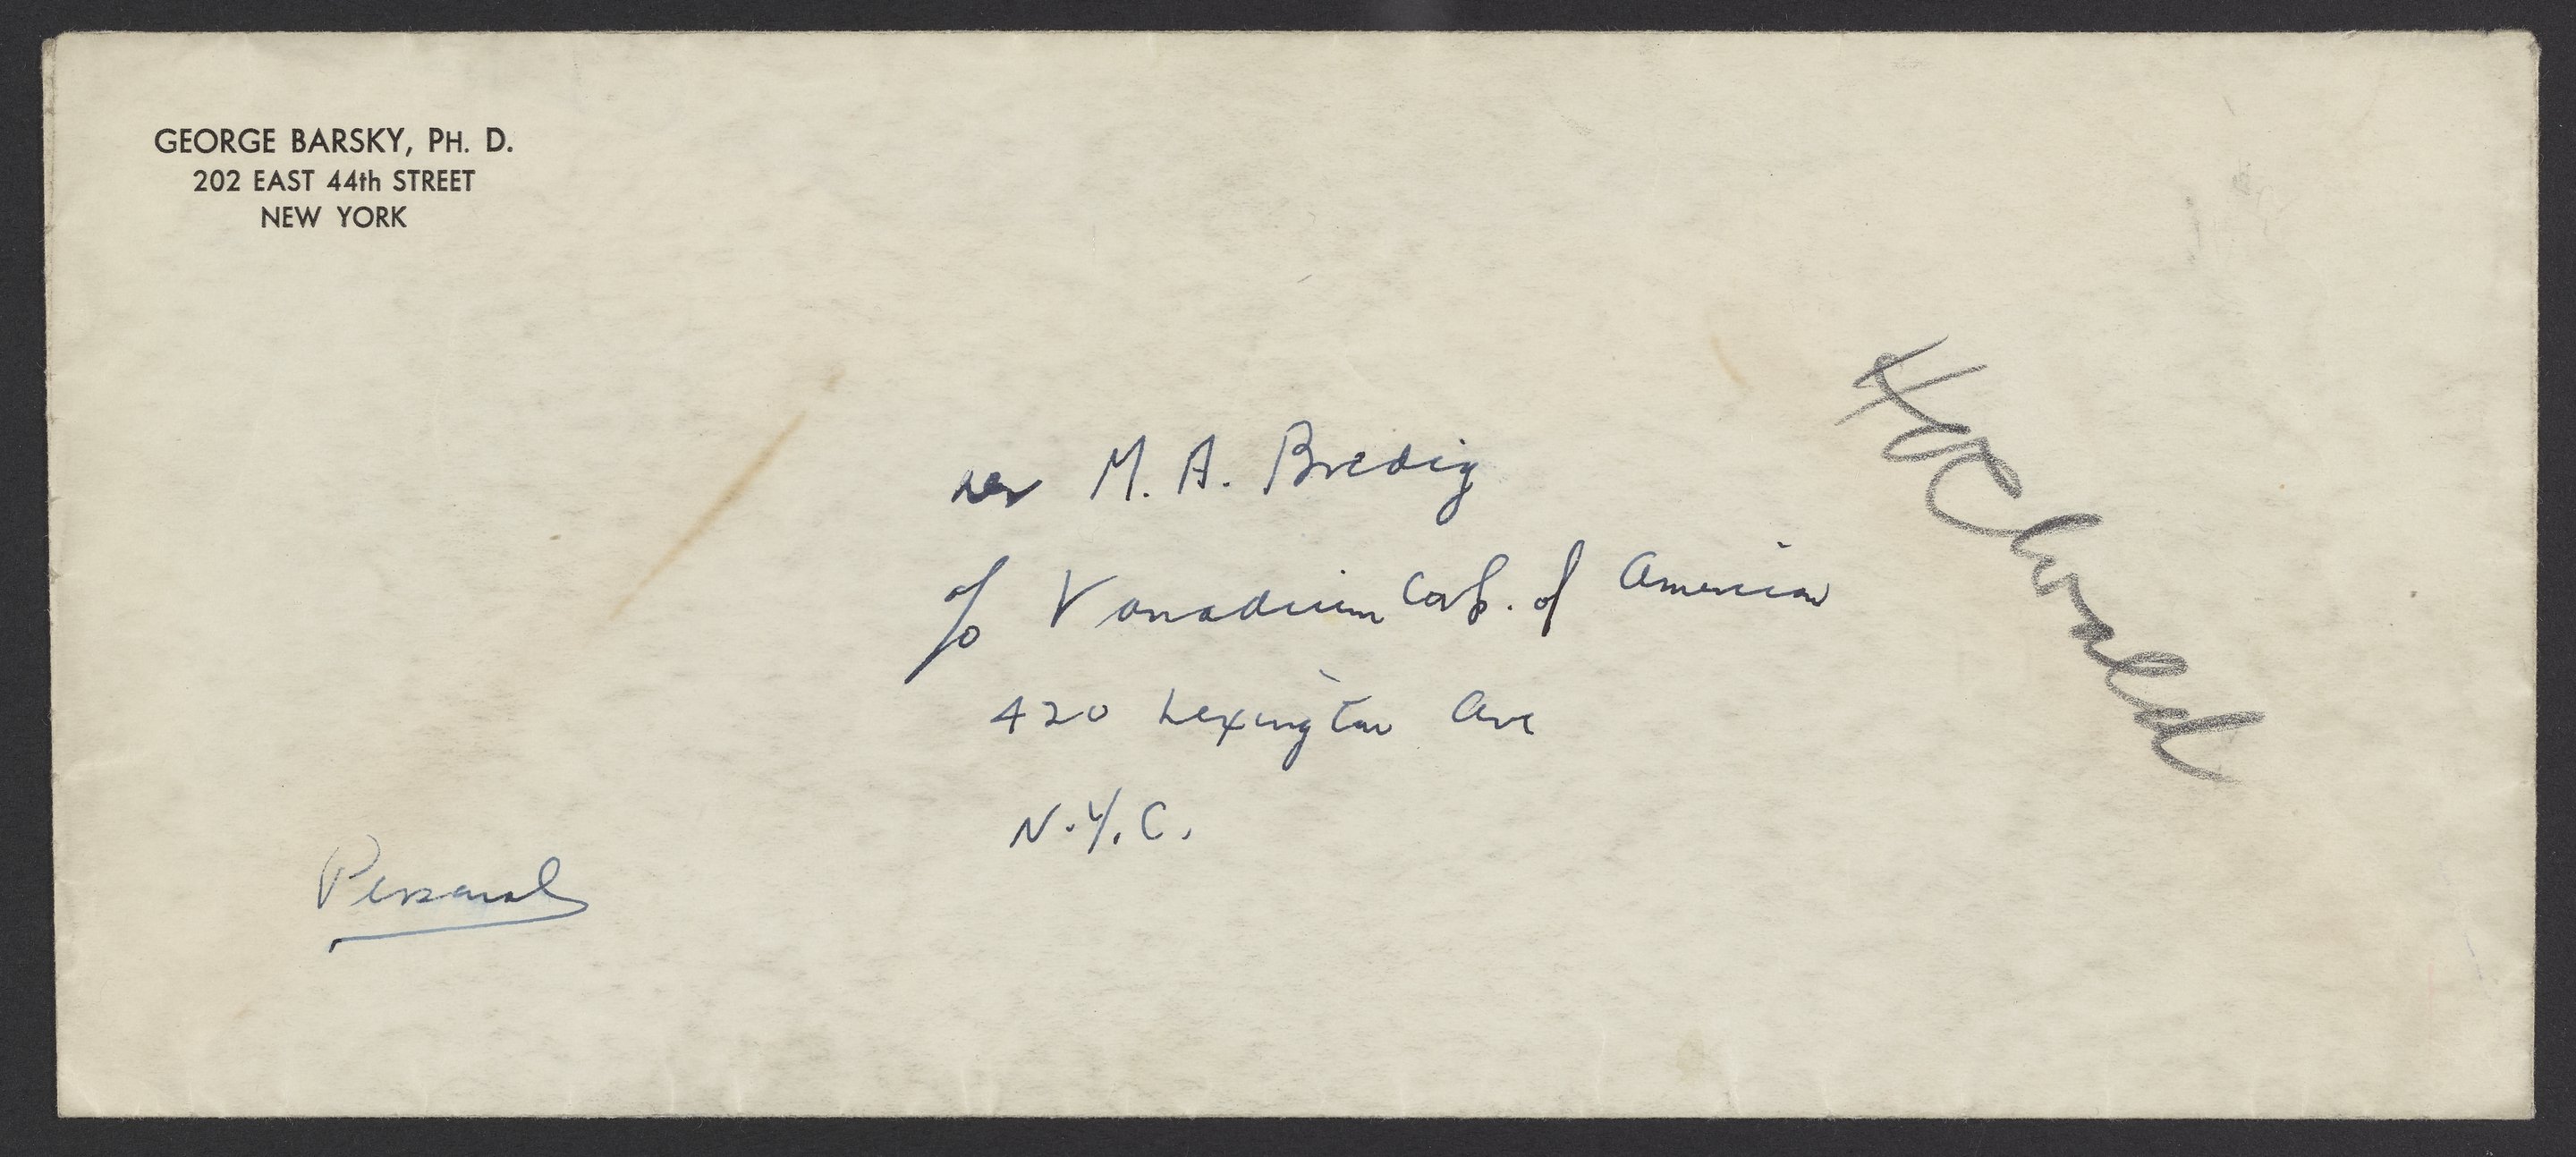 GEORGE BARSKY, PH. D.
202 EAST 44th STREET
NEW YORK
M. A. Bredig
c/o Vanadium Corp. of America
420 Lexington Ave
N.Y.C.
Personal
Hochwald